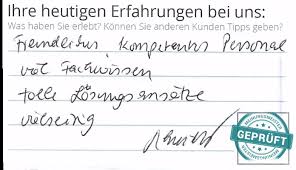 Ihre heutigen Erfahrungen bei uns:
Was haben Sie erlebt? Können Sie anderen Kunden Tipps geben?
Freundliches, kompetentes Personal
viel Fachwissen
tolle Lösungsansätze
vielseitig
GEPRÜFT